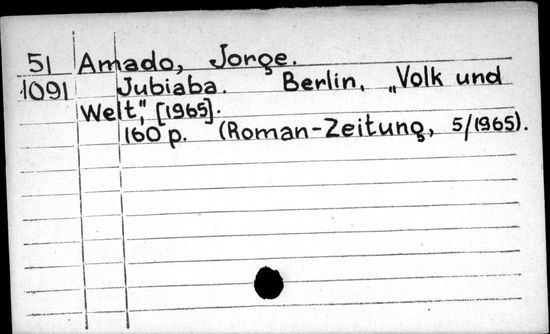 51 Amado, Jorge.
1091 Jubiaba. Berlin, „Volk und
Welt", [1965].
160 p. (Roman-Zeitung, 5/1965).